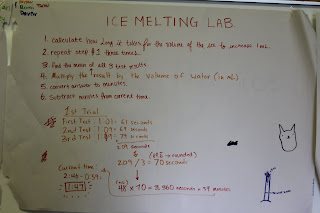 ICE MELTING LAB.
1. calculate how long it takes for the volume of the ice to increase 1 mL.
2. repeat step #1 three times.
3. find the mean of all 3 test results.
4. Multiply the result by the volume of water (in mL)
5. convert answer to minutes.
6. Subtract minutes from current time.
1st Trial
First Test 1:01= 61 seconds
2nd Test 1:09= 69 seconds
3rd Test
209 seconds
209/3 = 70 seconds
(rounded)
(mL)
Current time:
2:46 - 0:59=
1:47